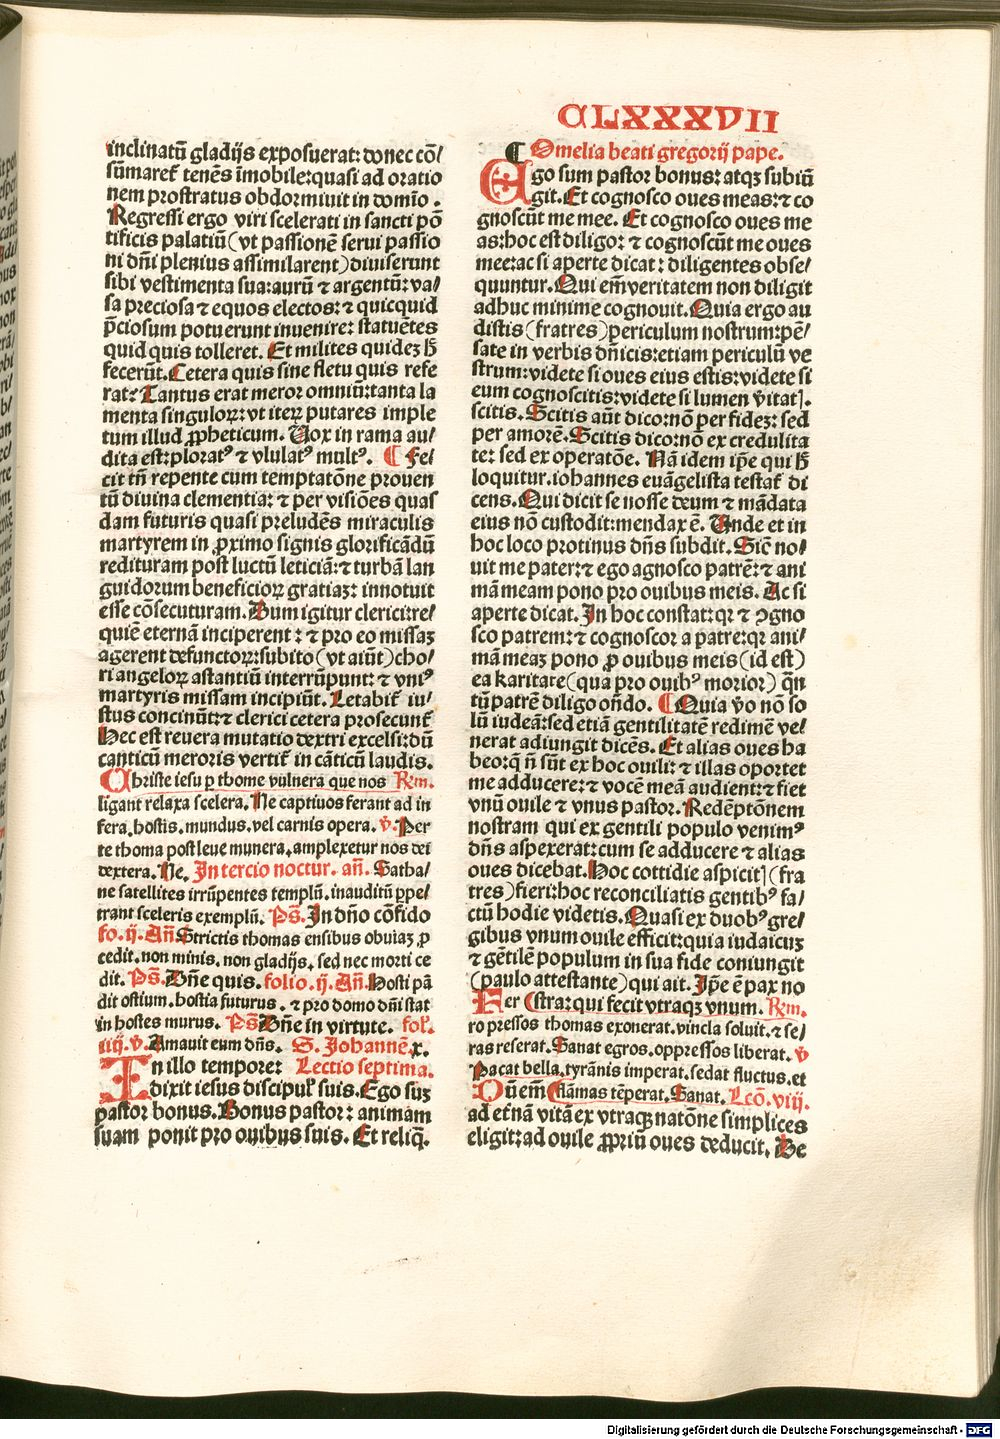 CLXXXVII
inclinatū gladijs exposuerat: donec cō/
sūmaret᷒ tenēs īmobile: quasi ad oratio
nem prostratus obdormiuit in domīo.
Regressi ergo viri scelerati in sancti pō
tificis palatiū (vt passionē serui passio
ni dn̄i plenius assimilarent) diuiserunt
sibi vestimenta sua: aurū ⁊ argentū: va/
sa preciosa ⁊ equos electos: ⁊ quicquid
p̄ciosum potuerunt inuenire: statuētes
quid quis tolleret. Et milites quidez h̄
fecerūt. Cetera quis sine fletu quis refe
rat? Tantus erat meror omniū: tanta la
menta singuloꝝ: vt iteꝝ putares imple
tum illud ꝓpheticum. Uox in rama au/
dita est: plorat⁹ ⁊ vlulat⁹ mult⁹. ¶ Fel
cit tn̄ repente cum temptatōne prouen
tū diuina clementia: ⁊ per visiōes quas
dam futuris quasi preludēs miraculis
martyrem in ꝓximo signis glorificādū
redituram post luctū leticiā: ⁊ turbā lan
guidorum beneficioꝝ gratiaz: innotuit
esse cōsecuturam. Dum igitur clerici: re/
quiē eternā inciperent: ⁊ pro eo missaz
agerent defunctoꝝ: subito (vt aiūt) cho/
ri angeloꝝ astantiū interrūpunt: ⁊ vni⁹
martyris missam incipiūt. Letabit᷒ iu/
stus concinūt: ⁊ clerici cetera prosecunt᷒
Hec est reuera mutatio dextri excelsi: dū
canticū meroris vertit᷒ in cāticū laudis.
Christe iesu p thome vulnera que nos Rm̄.
ligant relaxa scelera. Ne captiuos ferant ad in
fera, hostis, mundus, vel carnis opera. v̄. Per
te thoma post leue munera, amplexetur nos dei
dextera. Ne. In tercio noctur. an̄. Satha/
ne satellites irrūpentes templū, inauditū ꝑpe/
trant sceleris exemplū. Ps̄. In dn̄o cōfido
fo. ij. An̄ Strictis thomas ensibus obuiaz ꝓ
cedit, non minis, non gladijs, sed nec morti ce
dit. Ps̄. Dn̄e quis. folio. ij. An̄. Hosti pā
dit ostium, hostia futurus, ⁊ pro domo dn̄i stat
in hostes murus. Ps̄ Dn̄e in virtute. fol̄.
iiij. v̄. Amauit eum dn̄s. S. Johannē. x.
In illo tempore: Lectio septima.
dixit iesus discipul᷒ suis. Ego suz
pastor bonus. Bonus pastor: animam
suam ponit pro ouibus suis. Et reliq̄.
¶ Omelia beati gregorij pape.
Ego sum pastor bonus: atqȝ subiū
git. Et cognosco oues meas: ⁊ co
gnoscūt me mee. Et cognosco oues me
as: hoc est diligo: ⁊ cognoscūt me oues
mee: ac si aperte dicat: diligentes obse/
quuntur. Qui em̄ veritatem non diligit
adhuc minime cognouit. Quia ergo au
distis (fratres) periculum nostrum: pē/
sate in verbis dn̄icis: etiam periculū ve
strum: videte si oues eius estis: videte si
eum cognoscitis: videte si lumen v̄itatꝭ.
scitis. Scitis aūt dico: nō per fidez: sed
per amorē. Scitis dico: nō ex credulita
te: sed ex operatōe. Nā idem ip̄e qui h̄
loquitur. iohannes euāgelista testat᷒ di
cens. Qui dicit se nosse deum ⁊ mādata
eius nō custodit: mendax ē. Unde et in
hoc loco protinus dn̄s subdit. Sic̄ no/
uit me pater: ⁊ ego agnosco patrē: ⁊ ani
mā meam pono pro ouibus meis. Ac si
aperte dicat. In hoc constat: qꝛ ⁊ ꝯgno
sco patrem: ⁊ cognoscor a patre: qꝛ ani/
mā meaz pono ꝓ ouibus meis (id est)
ea karitate (qua pro ouib⁹ morior) q̄n
tū patrē diligo on̄do. ¶ Quia v̄o nō so
lū iudeā: sed etiā gentilitatē redimē ve/
nerat adiungit dicēs. Et alias oues ha
beo: q̄ n̄ sūt ex hoc ouili: ⁊ illas oportet
me adducere: ⁊ vocē meā audient: ⁊ fiet
vnū ouile ⁊ vnus pastor. Redēptōnem
nostram qui ex gentili populo venim⁹
dn̄s aspexerat: cum se adducere ⁊ alias
oues dicebat. Hoc cottidie aspicitꝭ (fra
tres) fieri: hoc reconciliatis gentib⁹ fa/
ctū hodie videtis. Quasi ex duob⁹ gre/
gibus vnum ouile efficit: quia iudaicuz
⁊ gētilē populum in sua fide coniungit
(paulo attestante) qui ait. Ip̄e ē pax no
Fer (stra: qui fecit vtraqȝ vnum. Rm̄.
ro pressos thomas exonerat, vincla soluit, ⁊ se/
ras reserat. Sanat egros, oppressos liberat. v̄
Pacat bella, tyrānis imperat, sedat fluctus, et
Dū em̄ (flāmas tēperat. Sanat. Lcō. viij.
ad etnā vitā ex vtraqȝ natōne simplices
eligit: ad ouile ꝓpriū oues deducit. De
Digitalisierung gefördert durch die Deutsche Forschungsgemeinschaft - DFG